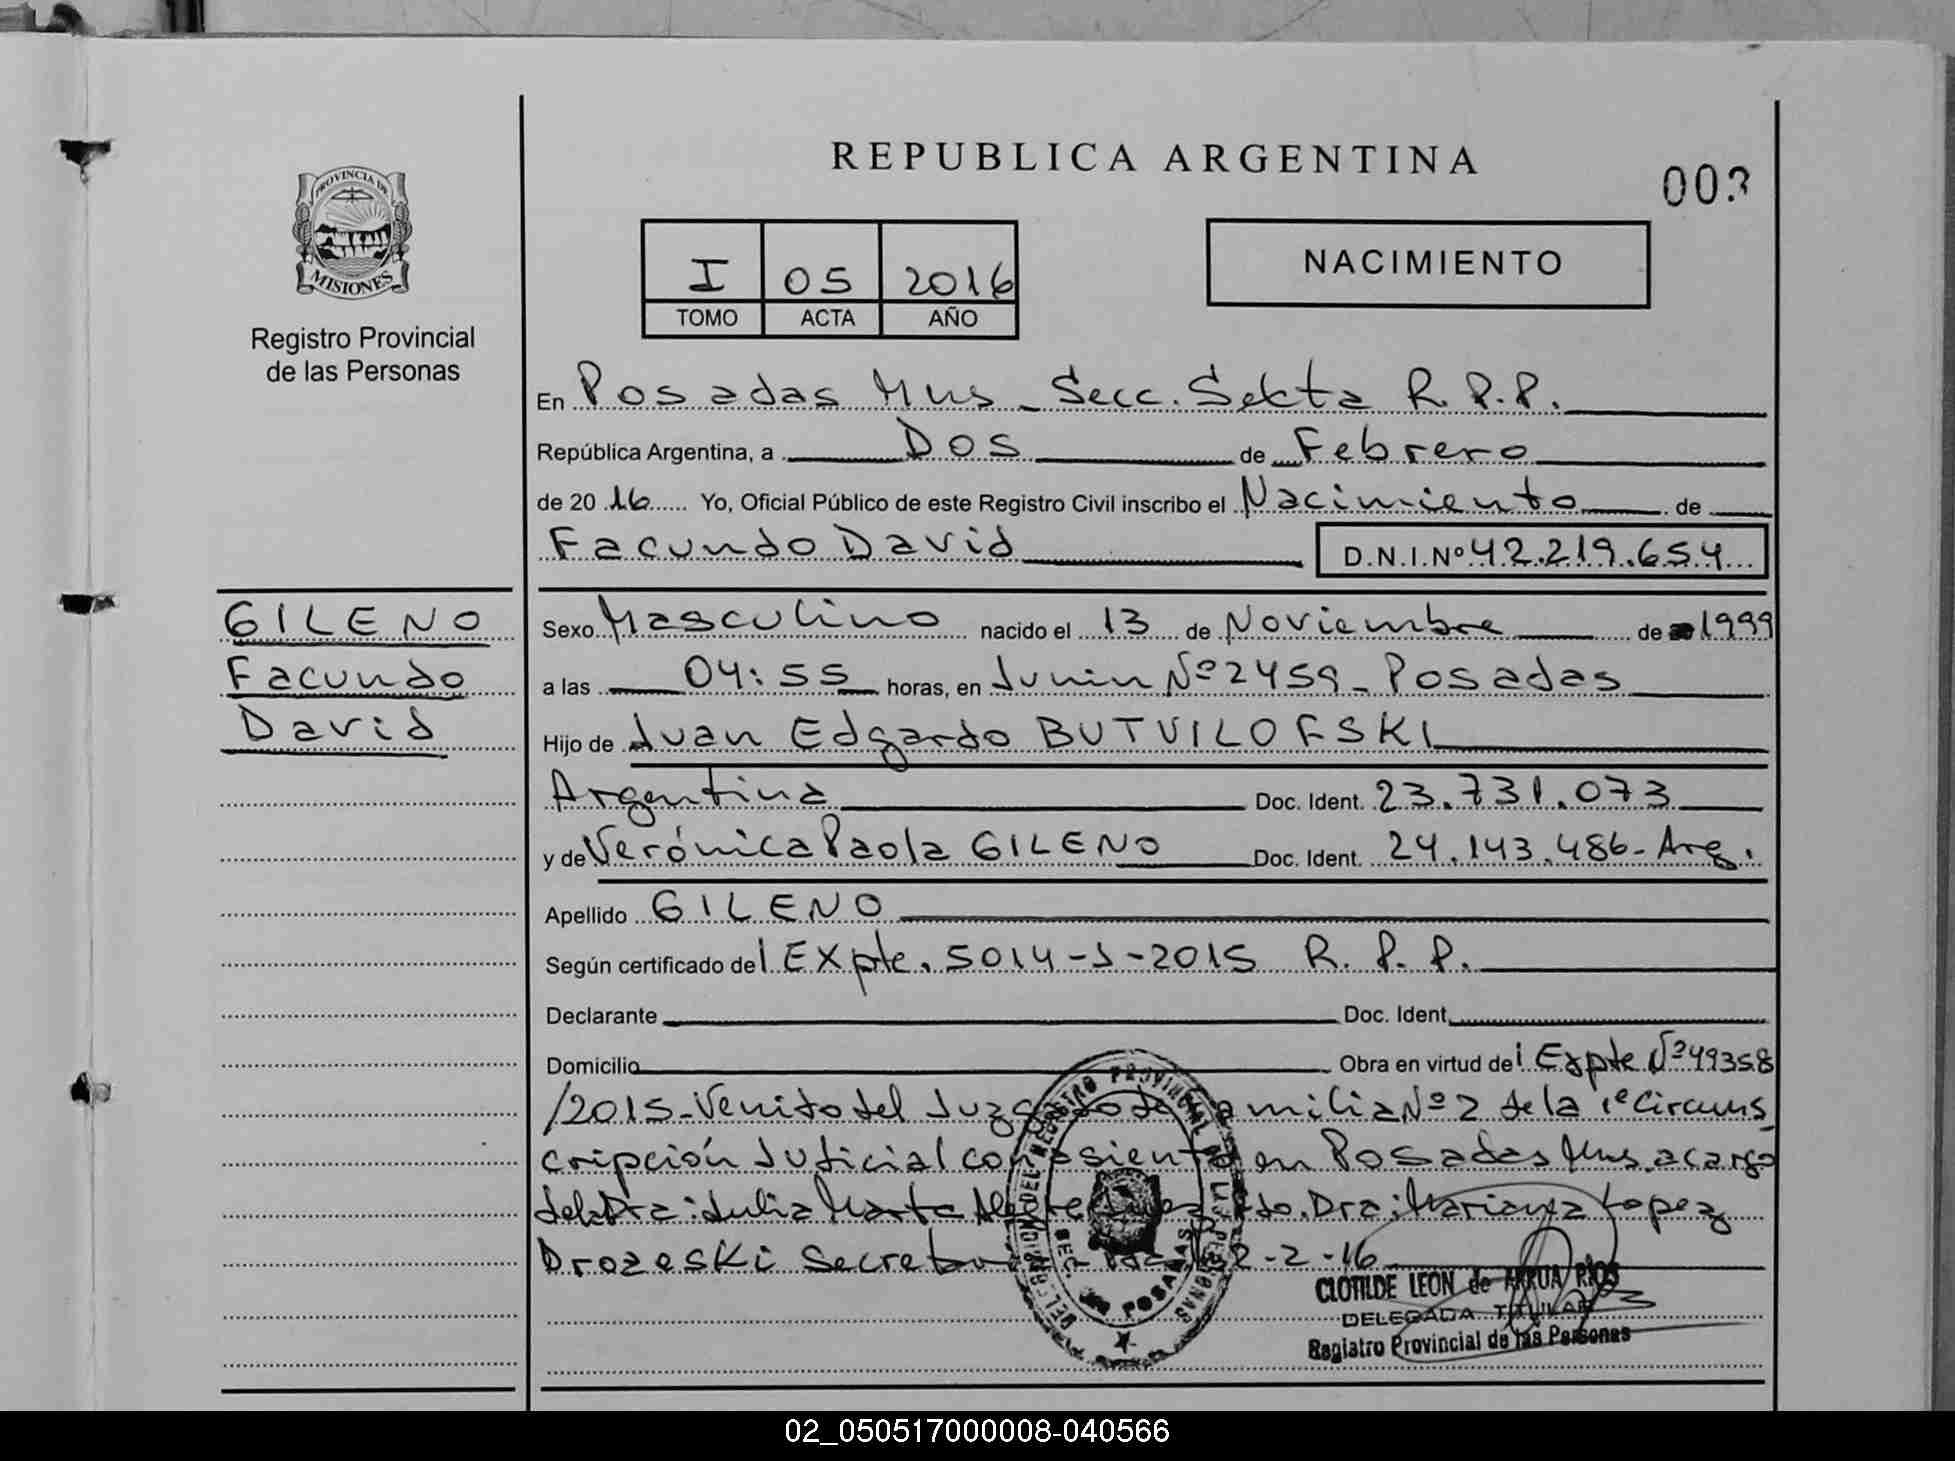 REPUBLICA ARGENTINA
003
PROVINCIA DE
MISIONES
Registro Provincial
de las Personas
I 05 2016
TOMO ACTA AÑO
NACIMIENTO
En Posadas Mns - Secc. Sexta R.P.P.
República Argentina, a Dos de Febrero
de 2016 Yo, Oficial Público de este Registro Civil inscribo el Nacimiento de
Facundo David D.N.I.Nº 42.219.654
GILENO
Facundo
David
Sexo Masculino nacido el 13 de Noviembre de 1999
a las 04:55 horas, en Junin Nº 2459 - Posadas
Hijo de Juan Edgardo BUTVILOFSKI
Argentina Doc. Ident. 23.731.073
y de Verónica Paola GILENO Doc. Ident. 24.143.486 - Arg.
Apellido GILENO
Según certificado del Expte. 5014-J-2015 R.P.P.
Declarante Doc. Ident.
Domicilio Obra en virtud del Expte Nº 49358
/2015 - Venido del Juzgado de Familia Nº 2 de la 1ª Circuns
cripción Judicial con asiento en Posadas Mns. a cargo
de la Dra: Julia Marta Dra: Mariana Lopez
Drozeski 2-2-16
DELEGACION DEL REGISTRO PROVINCIAL DE LAS PERSONAS
POSADAS
CLOTILDE LEON de ARRUA RIOS
DELEGADA TITULAR
Registro Provincial de las Personas
02_050517000008-040566